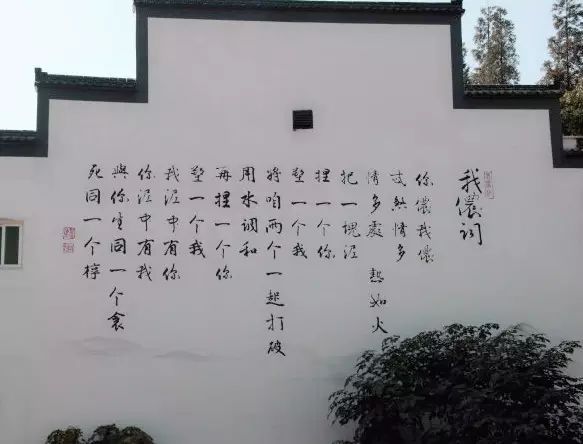 我儂詞
你儂我儂
忒煞情多
情多處 熱如火
把一塊泥
捏一个你
塑一个我
將咱兩个一起打破
用水調和
再捏一个你
塑一个我
我泥中有你
你泥中有我
與你生同一个衾
死同一个椁